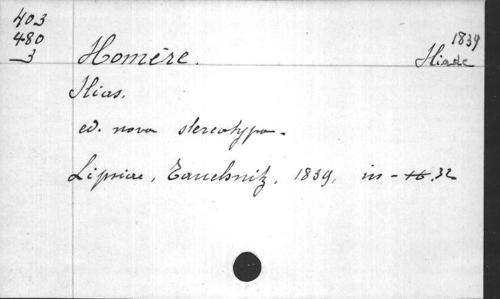 403
480
3
Homère.
1839
Iliade
Ilias.
ed. nova stereotypa.
Lipsiae, Tauchnitz, 1839, in-16.32